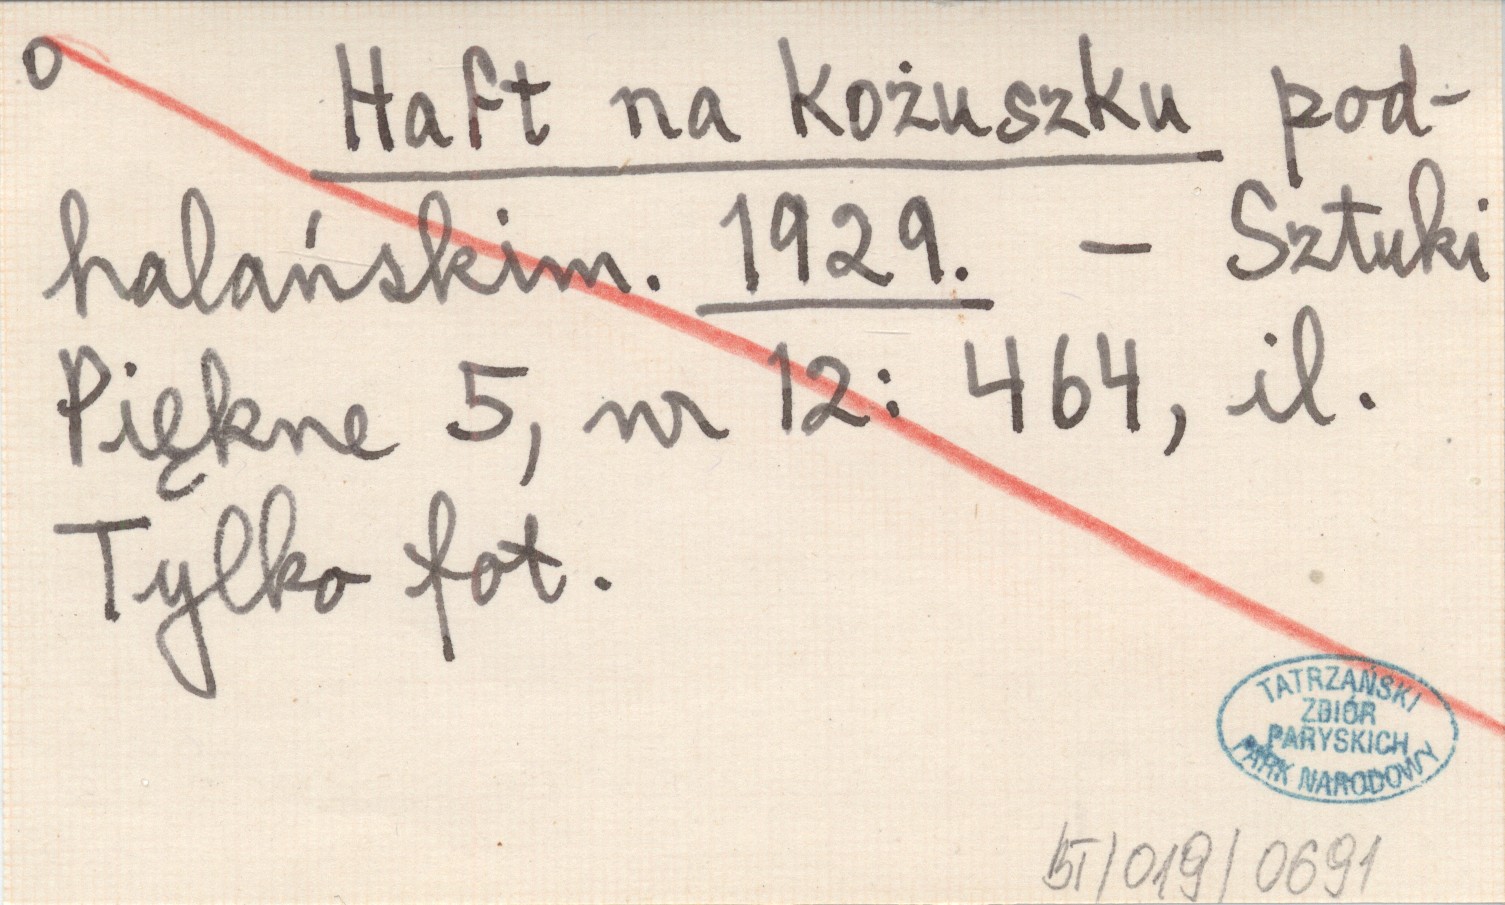 o Haft na kożuszku pod-
halańskim. 1929. – Sztuki
Piękne 5, nr 12: 464, il.
Tylko fot.
TATRZAŃSKI
ZBIÓR
PARYSKICH
PARK NARODOWY
BT/019/0691